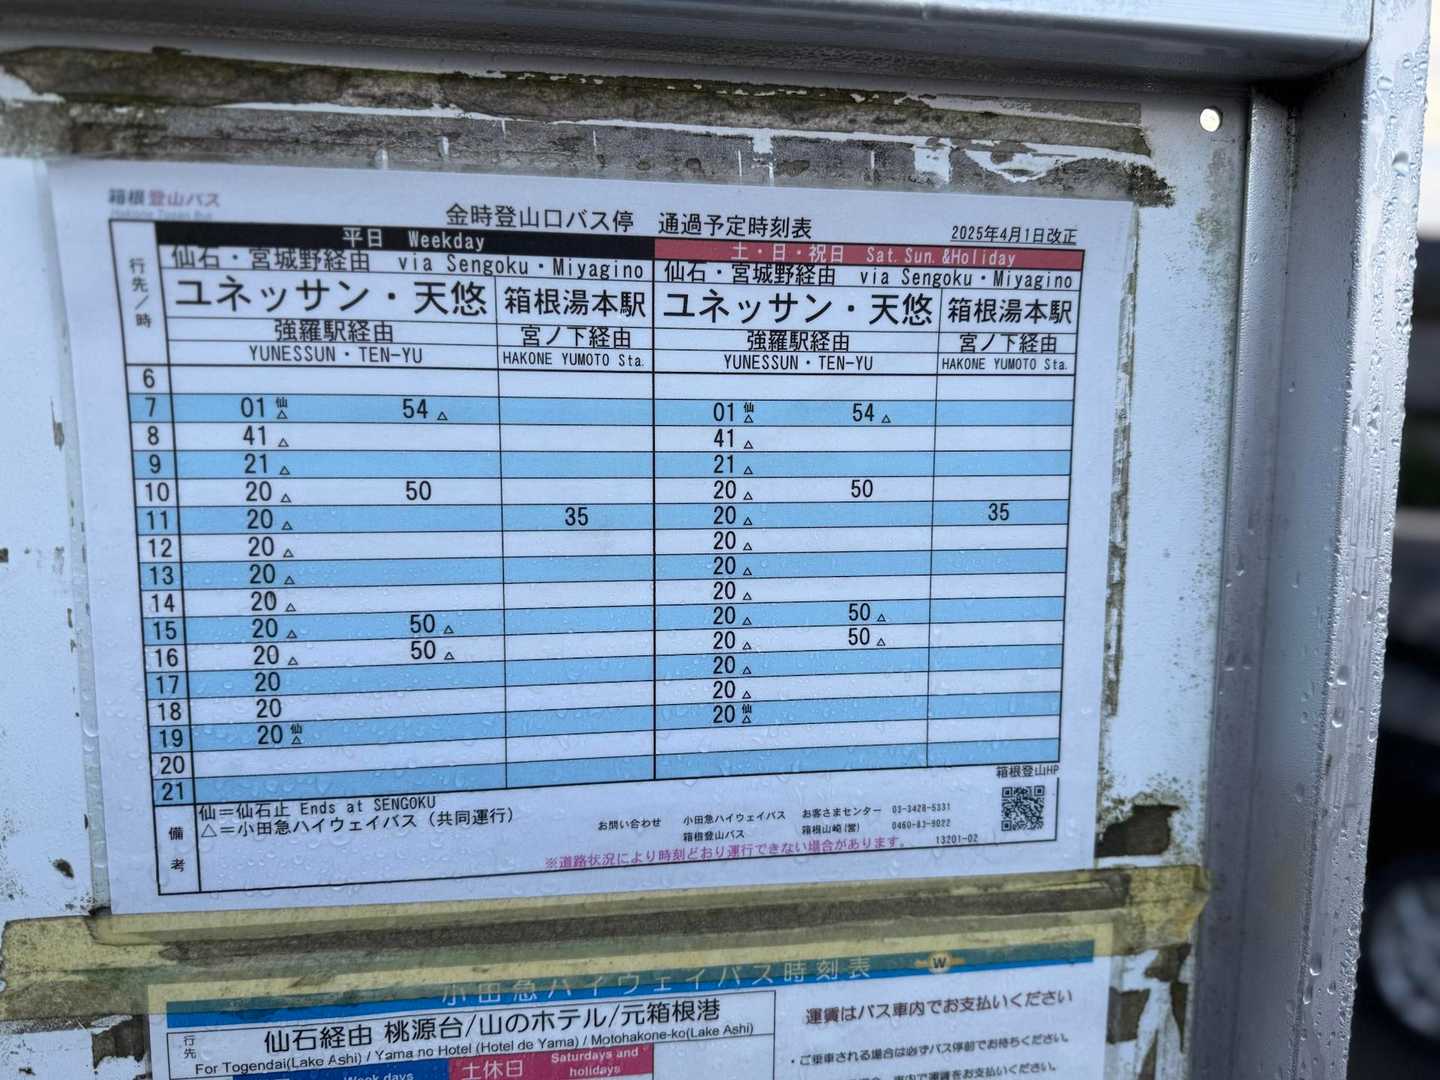 箱根登山バス
Hakone Tozan Bus
金時登山口バス停 通過予定時刻表
2025年4月1日改正
行先/時
平日 Weekday
土・日・祝日 Sat. Sun. &Holiday
仙石・宮城野経由 via Sengoku・Miyagino
仙石・宮城野経由 via Sengoku・Miyagino
ユネッサン・天悠 箱根湯本駅 ユネッサン・天悠 箱根湯本駅
強羅駅経由 宮ノ下経由 強羅駅経由 宮ノ下経由
YUNESSUN・TEN-YU HAKONE YUMOTO Sta. YUNESSUN・TEN-YU HAKONE YUMOTO Sta.
6
7 01 仙△ 54 △ 01 仙△ 54 △
8 41 △ 41 △
9 21 △ 21 △
10 20 △ 50 20 △ 50
11 20 △ 35 20 △ 35
12 20 △ 20 △
13 20 △ 20 △
14 20 △ 20 △
15 20 △ 50 △ 20 △ 50 △
16 20 △ 50 △ 20 △ 50 △
17 20 20 △
18 20 20 △
19 20 仙△ 20 仙△
20
21
備考
仙=仙石止 Ends at SENGOKU
△=小田急ハイウェイバス（共同運行）
お問い合わせ 小田急ハイウェイバス お客さまセンター 03-3428-5331
箱根登山バス 箱根山崎(営) 0460-83-9022
※道路状況により時刻どおり運行できない場合があります。
13201-02
箱根登山HP
小田急ハイウェイバス時刻表
W
行先
仙石経由 桃源台/山のホテル/元箱根港
For Togendai(Lake Ashi) / Yama no Hotel (Hotel de Yama) / Motohakone-ko(Lake Ashi)
Week days
土休日 Saturdays and holidays
運賃はバス車内でお支払いください
・ご乗車される場合は必ずバス停前でお待ちください。
車内で運賃をお支払いください。